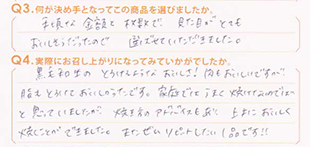 Q3.何が決め手となってこの商品を選びましたか。
手頃な金額と枚数で、見た目がとても
おいしそうだったので 選ばせていただきました。
Q4.実際にお召し上がりになってみていかがでしたか。
黒毛和牛のとろけるようなおいしさ!肉もおいしいですが
脂もとろけておいしかったです。家庭ではうまく焼けないのでは
と思っていましたが 焼き方のアドバイスもあり 上手においしく
焼くことができました。またぜひリピートしたい1品です!!